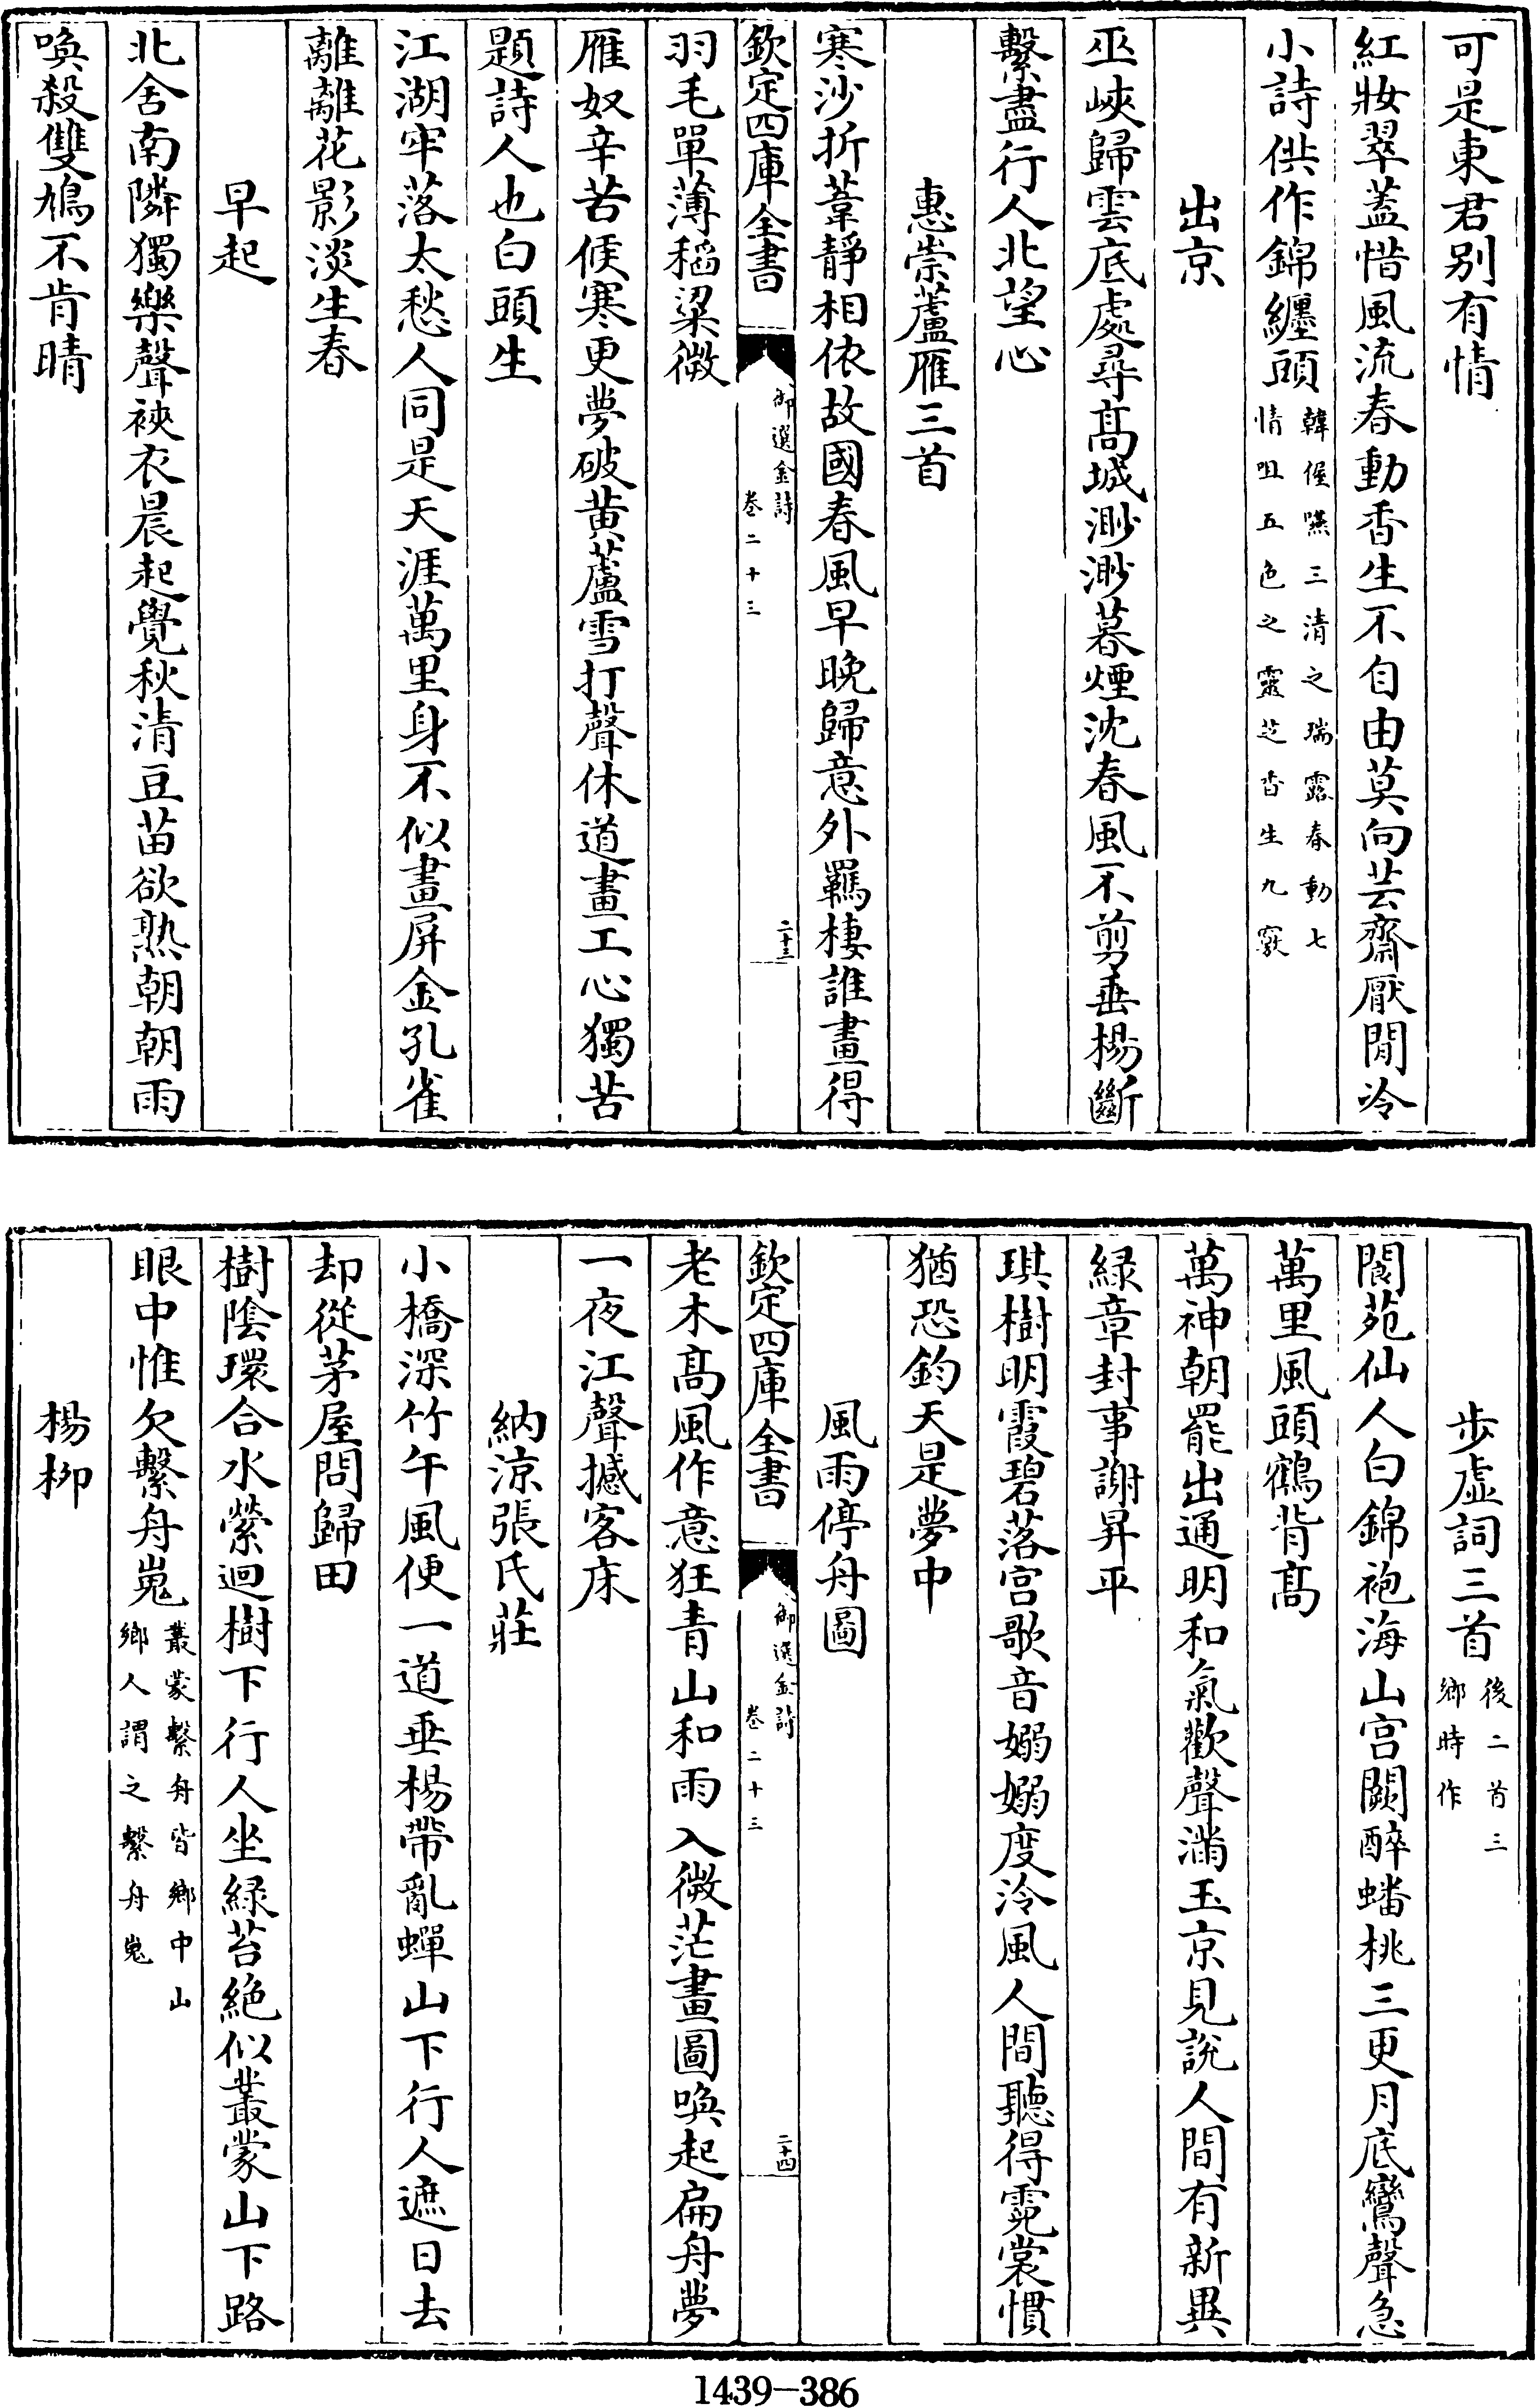 可是東君別有情
紅妝翠葢惜風流春動香生不自由莫向芸齋厭閒冷
小詩供作錦纏頭韓偓嚥三清之瑞露春動七
情咀五色之靈芝香生九竅
出京
巫峽歸雲底處尋髙城渺渺暮煙沈春風不剪垂楊斷
繫盡行人北望心
惠崇蘆雁三首
寒沙折葦靜相依故國春風早晚歸意外羈棲誰畫得
欽定四庫全書
御選金詩
卷二十三
二十三
羽毛單薄稻粱微
雁奴辛苦候寒更夢破黄蘆雪打聲休道畫工心獨苦
題詩人也白頭生
江湖牢落太愁人同是天涯萬里身不似畫屏金孔雀
離離花影淡生春
早起
北舍南隣獨樂聲裌衣晨起覺秋清豆苗欲熟朝朝雨
喚殺雙鳩不肯晴
步虚詞三首後二首三
鄉時作
閬苑仙人白錦袍海山宫闕醉蟠桃三更月底鸞聲急
萬里風頭鶴背髙
萬神朝罷出通明和氣歡聲滿玉京見說人間有新異
緑章封事謝昇平
琪樹明霞碧落宫歌音嫋嫋度泠風人間聽得霓裳慣
猶恐鈞天是夢中
風雨停舟圖
老木髙風作意狂青山和雨入微茫畫圖喚起扁舟夢
欽定四庫全書
御選金詩
卷二十三
二十四
一夜江聲撼客床
納涼張氏莊
小橋深竹午風便一道垂楊帶亂蟬山下行人遮日去
却從茅屋問歸田
樹陰環合水縈迴樹下行人坐緑苔絶似叢蒙山下路
眼中惟欠繫舟嵬叢蒙繫舟皆鄉中山
鄉人謂之繫舟嵬
楊栁
1439-386